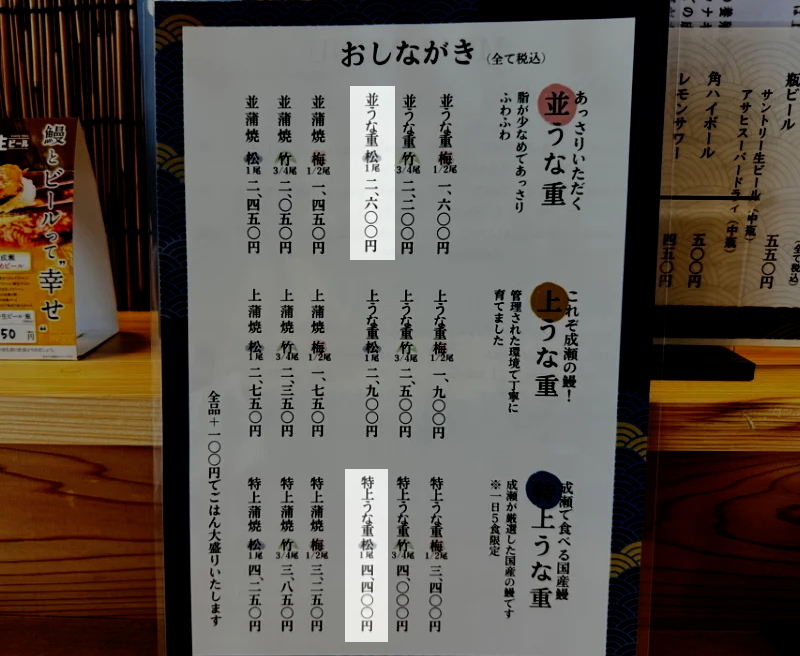 おしながき（全て税込）
あっさりいただく
並うな重
脂が少なめであっさり
ふわふわ
並うな重 梅 1/2尾 一、六〇〇円
並うな重 竹 3/4尾 二、二〇〇円
並うな重 松 1尾 二、六〇〇円
並蒲焼 梅 1/2尾 一、四五〇円
並蒲焼 竹 3/4尾 二、〇五〇円
並蒲焼 松 1尾 二、四五〇円
これぞ成瀬の鰻！
上うな重
管理された環境で丁寧に
育てました
上うな重 梅 1/2尾 一、九〇〇円
上うな重 竹 3/4尾 二、五〇〇円
上うな重 松 1尾 二、九〇〇円
上蒲焼 梅 1/2尾 一、七五〇円
上蒲焼 竹 3/4尾 二、三五〇円
上蒲焼 松 1尾 二、七五〇円
成瀬で食べる国産鰻
特上うな重
成瀬が厳選した国産の鰻です
※一日５食限定
特上うな重 梅 1/2尾 三、四〇〇円
特上うな重 竹 3/4尾 四、〇〇〇円
特上うな重 松 1尾 四、四〇〇円
特上蒲焼 梅 1/2尾 三、二五〇円
特上蒲焼 竹 3/4尾 三、八五〇円
特上蒲焼 松 1尾 四、二五〇円
全品＋一〇〇円でごはん大盛りいたします
瓶ビール
サントリー生ビール（中瓶）
アサヒスーパードライ（中瓶）
五五〇円
角ハイボール 五〇〇円
レモンサワー 四五〇円
（全て税込）
鰻とビールって"幸せ"
50円